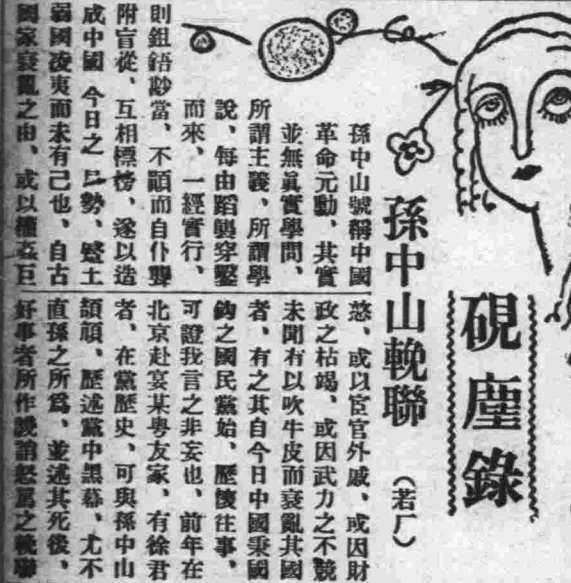 硯塵錄
孫中山輓聯 (若厂)
孫中山號稱中國
革命元勳、其實
並無眞實學問、
所謂主義、所謂學
說、每由蹈襲穿鑿
而來、一經實行、
則鉏鋙尠當、不顚而自仆聾
附盲從、互相標榜、遂以造
成中國 今日之 勢、蹙土
弱國凌夷而未有已也、自古
國家衰亂之由、或以權姦巨
慝、或以宦官外戚、或因財
政之枯竭、或因武力之不競
未聞有以吹牛皮而衰亂其國
者、有之其自今日中國秉國
鈞之國民黨始、歷懷往事、
可證我言之非妄也、前年在
北京赴宴某粵友家、有徐君
者、在黨歷史、可與孫中山
頡頏、歷述黨中黑幕、尤不
直孫之所爲、並述其死後、
好事者所作譏誚怒罵之輓聯